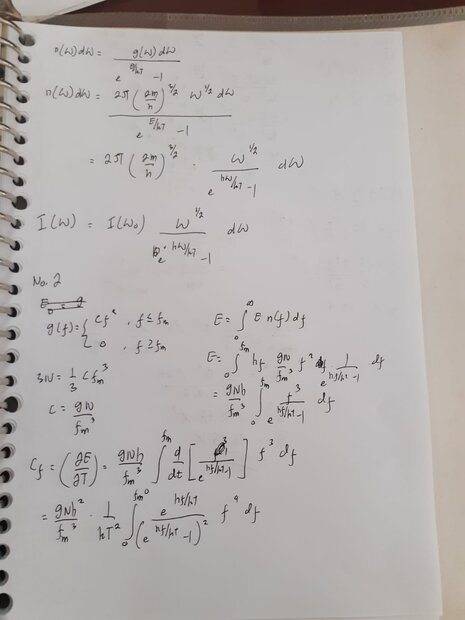 n(ω)dω = g(ω)dω / (e^{g/kT} -1)
n(ω)dω = 2π (2m/h)^{3/2} ω^{1/2} dω / (e^{E/kT} -1)
= 2π (2m/h)^{3/2} · ω^{1/2} / (e^{hω/kT} -1) dω
I(ω) = I(ω₀) ω^{1/2} / (e^{hω/kT} -1) dω
No. 2
g(f) = { Cf² , f ≤ fm
0 , f ≥ fm
E = ∫₀^∞ E n(f) df
3N = 1/3 C fm³
C = 9N / fm³
E = ∫₀^{fm} hf 9N/fm³ f² 1/(e^{hf/kT} -1) df
= 9Nh/fm³ ∫₀^{fm} f³/(e^{hf/kT} -1) df
C_f = (∂E/∂T) = 9Nh/fm³ ∫₀^{fm} d/dt [1/(e^{hf/kT} -1)] f³ df
= 9Nh²/fm³ · 1/kT² ∫₀^{fm} e^{hf/kT} / (e^{hf/kT} -1)² f⁴ df